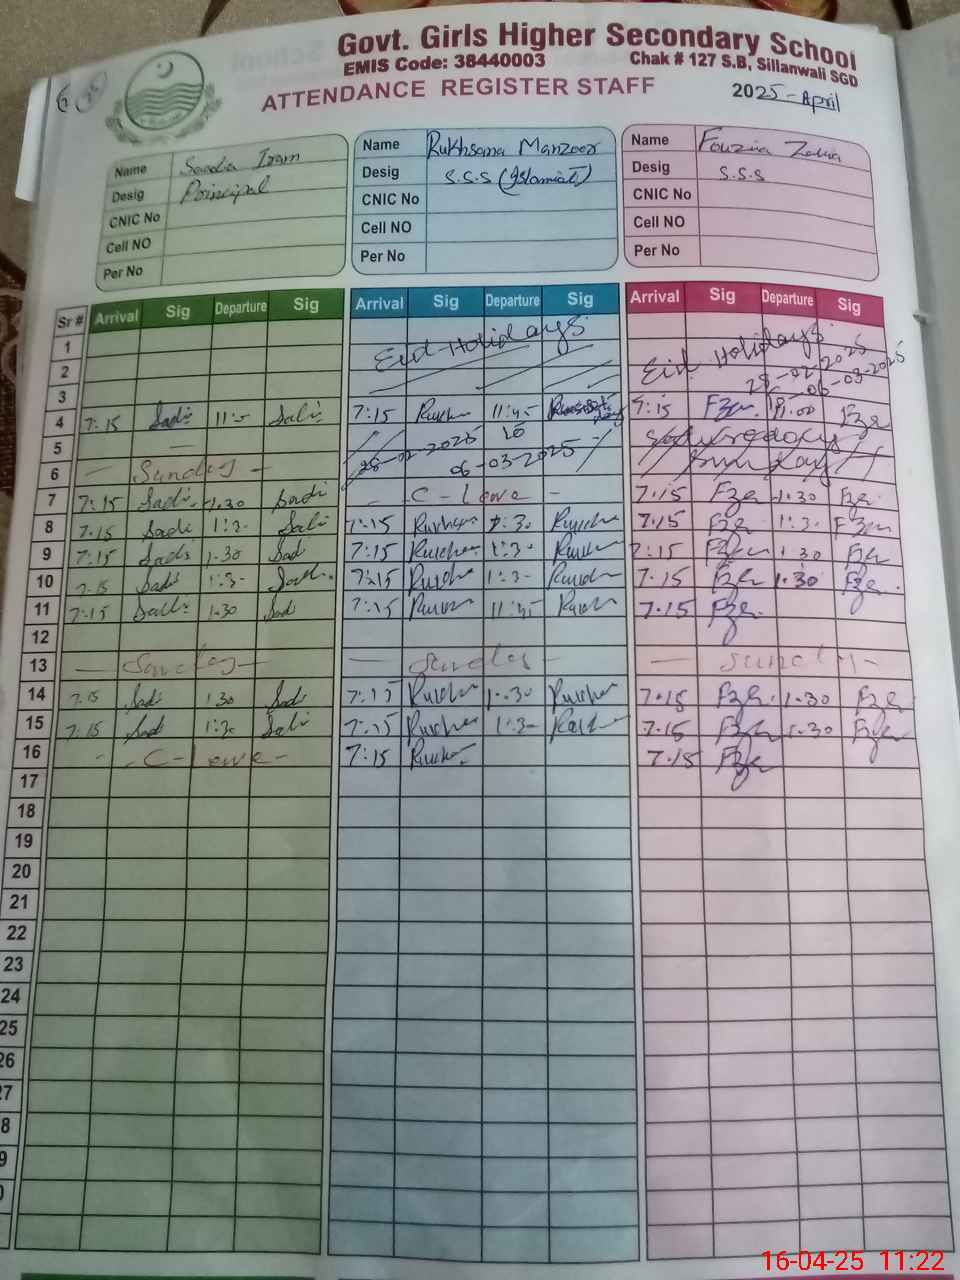 Govt. Girls Higher Secondary School
EMIS Code: 38440003 Chak # 127 S.B, Sillanwali SGD
ATTENDANCE REGISTER STAFF 2025-April
Name Sadia Iram
Desig Principal
CNIC No
Cell NO
Per No
Name Rukhsana Manzoor
Desig S.S.S (Islamiat)
CNIC No
Cell NO
Per No
Name Fouzia
Desig S.S.S
CNIC No
Cell NO
Per No
Sr # Arrival Sig Departure Sig Arrival Sig Departure Sig Arrival Sig Departure Sig
1 Eid Holidays
2 Eid Holidays
3 28-02-2025
4 7:15 Sadi 7:15 Rukh 11:45 7:15 Fze Fze
06-03-2025
5 28-02-2025 to Saturday
6 - Sunday - 06-03-2025 Sunday
7 7:15 Sadi 1.30 Sadi - C-Leave - 7.15 Fze 1.30 Fze
8 7:15 Sadi 1:30 Sadi 7:15 Rukh 1:30 Rukh 7.15 Fze 1:30 Fze
9 7:15 Sadi 1.30 Sadi 7:15 Rukh 1:30 Rukh 7:15 Fze 1.30 Fze
10 7:15 Sadi 1:30 Sadi 7:15 Rukh 1:30 Rukh 7.15 Fze 1:30 Fze
11 7:15 Sadi 1.30 Sadi 7:15 Rukh 11:45 Rukh 7.15 Fze
12
13 - Sunday - - Sunday - - Sunday -
14 7:15 Sadi 1.30 Sadi 7:15 Rukh 1.30 Rukh 7.15 Fze 1.30 Fze
15 7:15 Sadi 1:30 Sadi 7:15 Rukh 1:30 Rukh 7.15 Fze 1.30 Fze
16 - C-Leave - 7:15 Rukh 7.15 Fze
17
18
19
20
21
22
23
24
25
26
27
8
9
0
16-04-25 11:22